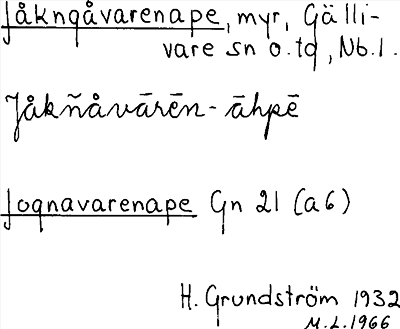 Jåkngåvarenape, myr, Gälli-
vare sn o. td, Nb. l.
Jåkñåvārēn-āhpē
Jognavarenape Gn 21 (a6)
H. Grundström 1932
M.L. 1966